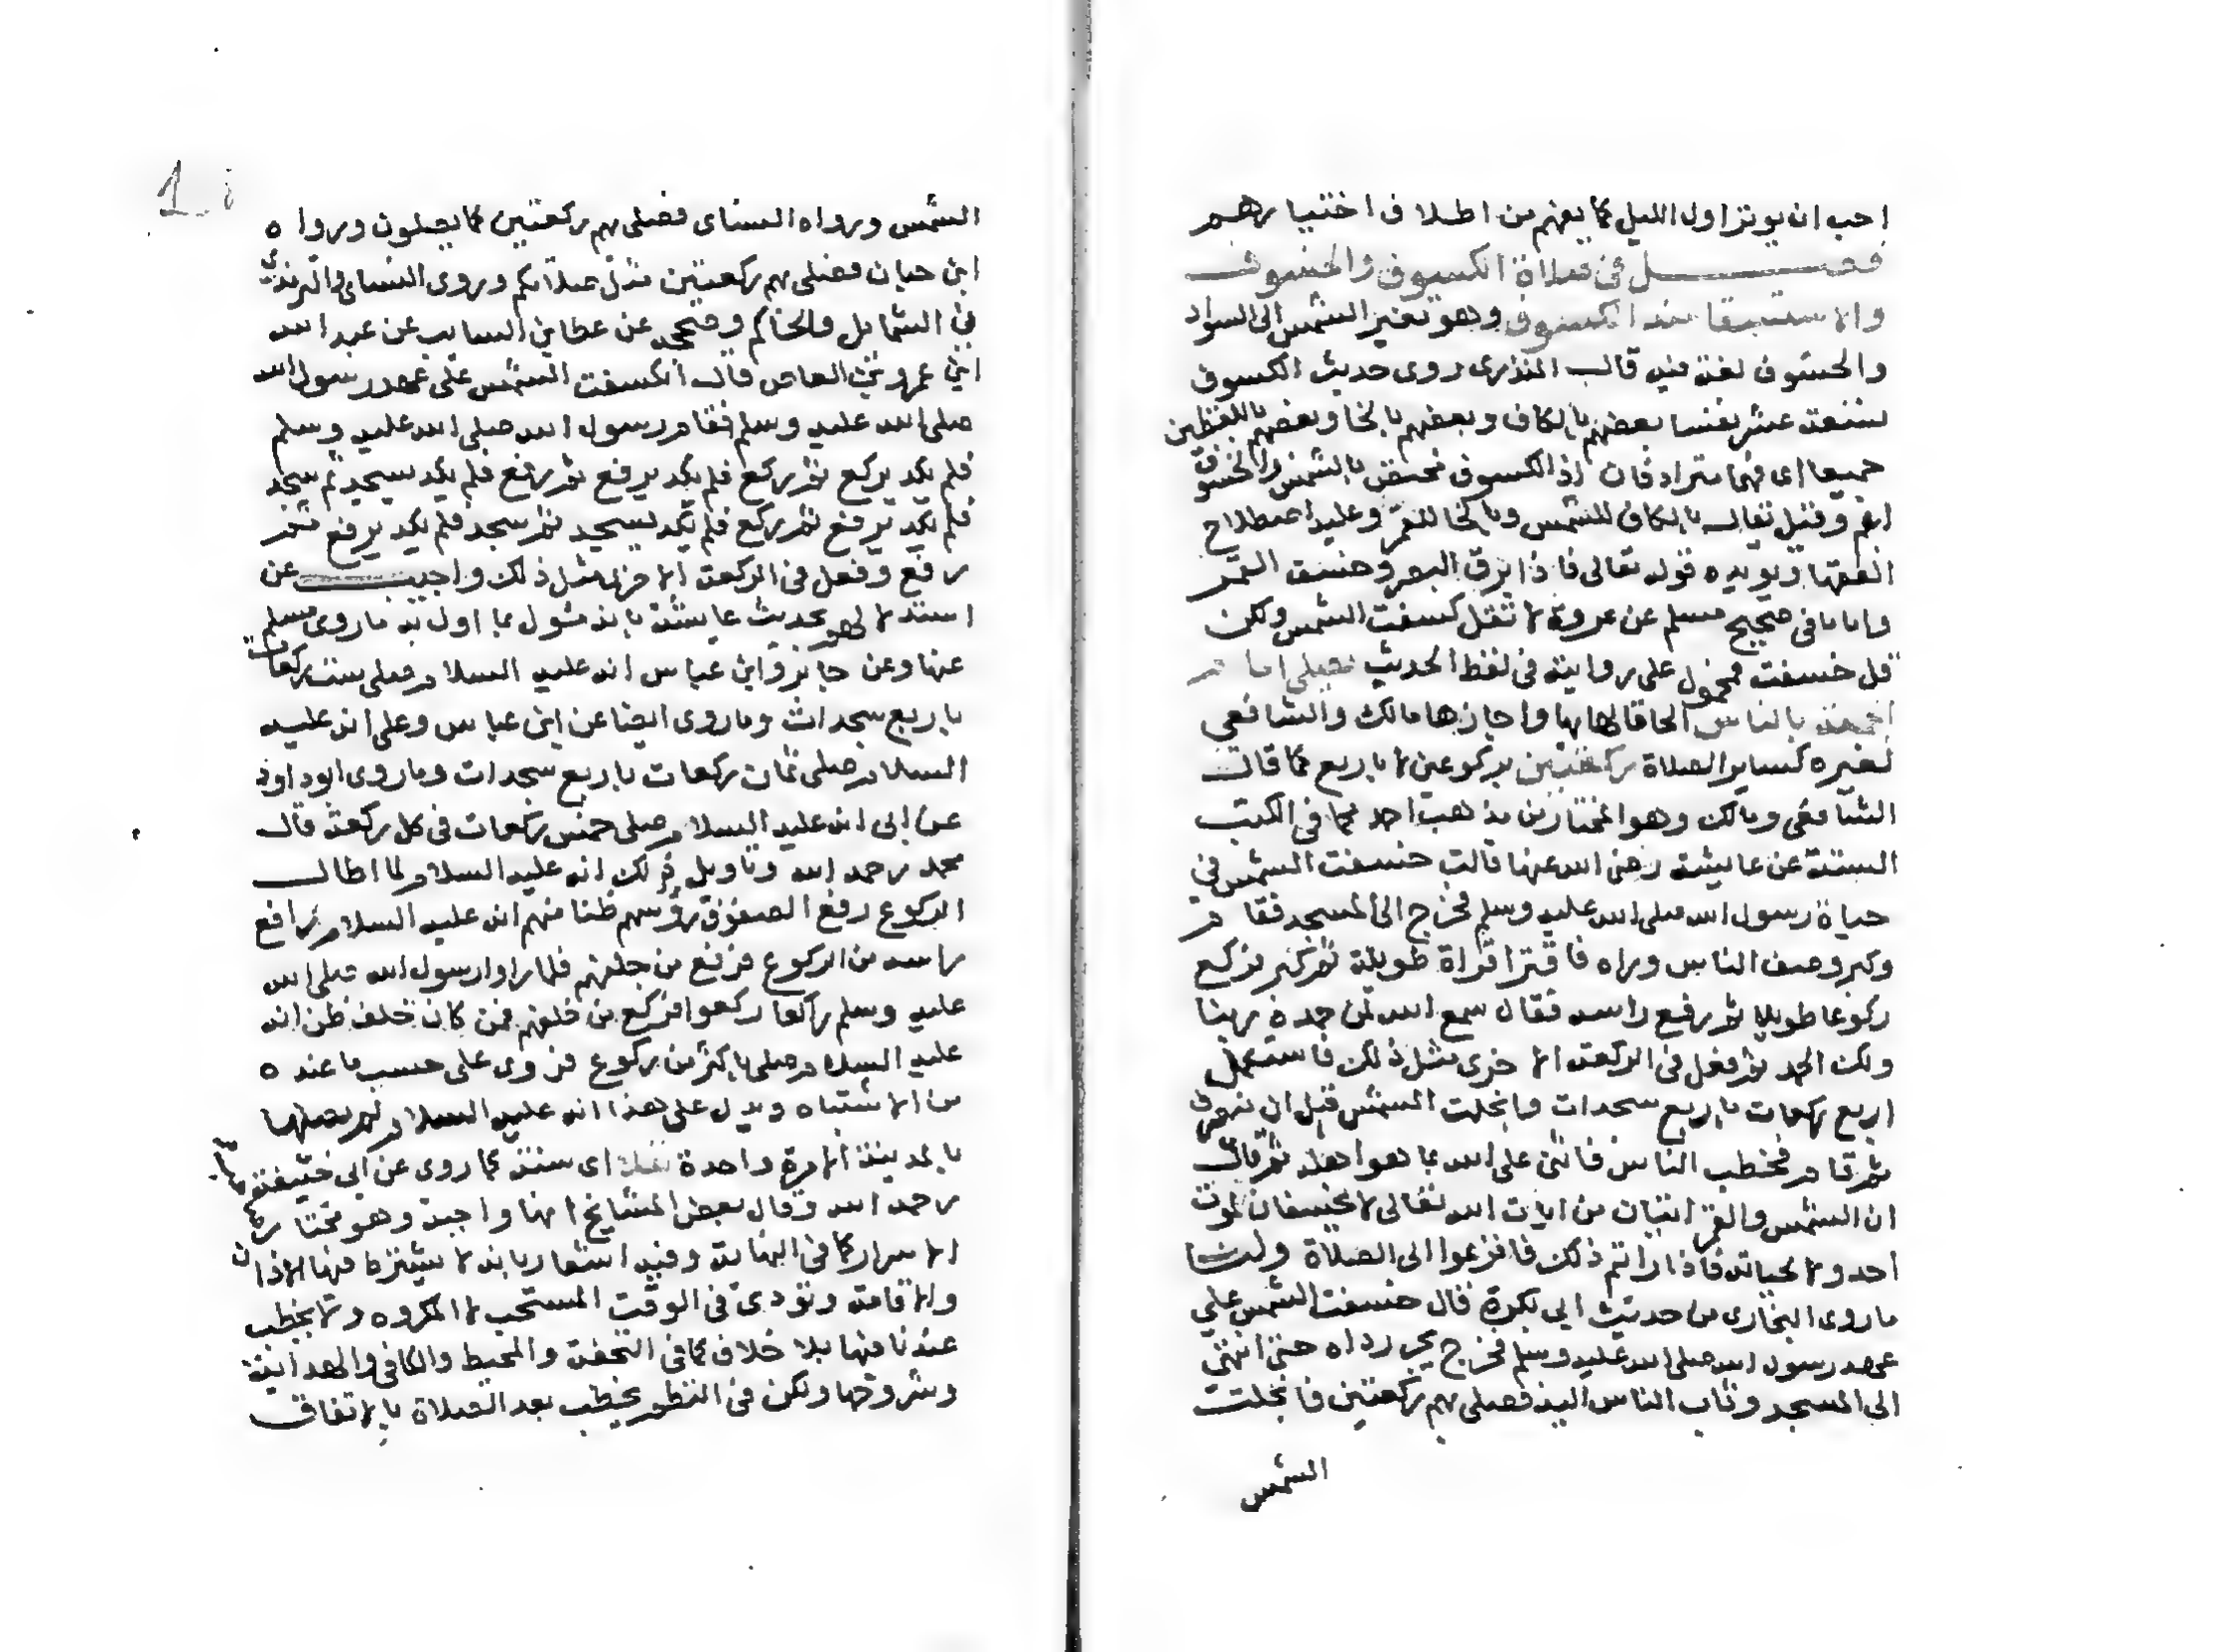 احب ان يوتر اول الليل كما يفهم من اطلاق اختيارهم
فصل في صلاة الكسوف والخسوف
والاستسقا الكسوف وهو تغير الشمس الى السواد
والخسوف لغة فيه قال المنذري روى حديث الكسوف
تسعة عشر نفسا بعضهم بالكاف وبعضهم بالخا وبعضهم باللفظين
جميعا اى فهما مترادفان اذ الكسوف مختص بالشمس والخسوف
اعم وقيل يقال بالكاف للشمس وبالخا للقمر وعليه اصطلاح
الفقها ويويده قوله تعالى فاذا برق البصر وخسف القمر
واما ما في صحيح مسلم عن عروة لا تقل كسفت الشمس ولكن
قل خسفت فمحمول على روايته في لفظ الحديث يصلى امام
الجمعة بالناس الحاقا لها بها واجازها مالك والشافعي
لغيره كساير الصلاة ركعتين بركوعين لا باربع كما قال
الشافعي ومالك وهو المختار من مذهب احمد لما في الكتب
الستة عن عايشة رضى الله عنها قالت خسفت الشمس في
حياة رسول الله صلى الله عليه وسلم فخرج الى المسجد فقام
وكبر وصف الناس وراه فاقترا قراة طويلة ثم كبر فركع
ركوعا طويلا ثم رفع راسه فقال سمع الله لمن حمده ربنا
ولك الحمد ثم فعل في الركعة الاخرى مثل ذلك فاستكمل
اربع ركعات باربع سجدات وانجلت الشمس قبل ان ينصرف
ثم قام فخطب الناس فاثنى على الله بما هو اهله ثم قال
ان الشمس والقمر ايتان من ايات الله تعالى لا يخسفان لموت
احد ولا لحياته فاذا راتم ذلك فافزعوا الى الصلاة ولنا
ما روى البخارى من حديث ابى بكرة قال خسفت الشمس على
عهد رسول الله صلى الله عليه وسلم فخرج يجر رداه حتى انتهى
الى المسجد وثاب الناس اليه فصلى بهم ركعتين فانجلت
الشمس
الشمس ورواه النساى فصلى بهم ركعتين كما يصلون ورواه
ابن حبان فصلى بهم ركعتين مثل صلاتكم وروى النساى والترمذى
في الشمايل والحاكم وصححه عن عطا بن السايب عن عبد الله
ابن عمرو بن العاص قال انكسفت الشمس على عهد رسول الله
صلى الله عليه وسلم فقام رسول الله صلى الله عليه وسلم
فلم يكد يركع ثم ركع فلم يكد يرفع ثم رفع فلم يكد يسجد ثم سجد
فلم يكد يرفع ثم ركع فلم يكد يسجد ثم سجد فلم يكد يرفع ثم
رفع وفعل في الركعة الاخرى مثل ذلك واجيب عن
استدلالهم بحديث عايشة بانه مئول بما اول به ما روى مسلم
عنها وعن جابر وابن عباس انه عليه السلام صلى ست ركعات
باربع سجدات وما روى ايضا عن ابن عباس وعلى انه عليه
السلام صلى ثمان ركعات باربع سجدات وما روى ابو داود
عن ابى انه عليه السلام صلى خمس ركعات في كل ركعة قال
محمد رحمه الله وتاويل ذلك انه عليه السلام لما اطال
الركوع رفع الصفوف رؤسهم ظنا منهم انه عليه السلام رافع
راسه من الركوع فرفع من خلفهم فلما راوا رسول الله صلى الله
عليه وسلم راكعا ركعوا فركع من خلفهم فمن كان خلف ظن انه
عليه السلام صلى باكثر من ركوع فروى على حسب ما عنده
من الاشتباه ويدل على هذا انه عليه السلام لم يصلها
بالمدينة الا مرة واحدة نفلا اى سنة كما روى عن ابى حنيفة
رحمه الله وقال بعض المشايخ انها واجبة وهو مختار
الاسرار كما في النهاية وفيه اشعار بانه لا يشترط فيها الاذان
والاقامة وتؤدى في الوقت المستحب لا المكروه ولا يخطب
عندنا فيها بلا خلاف كما في التحفة والمحيط والكافى والهداية
وشروحها ولكن في النظم يخطب بعد الصلاة بالاتفاق